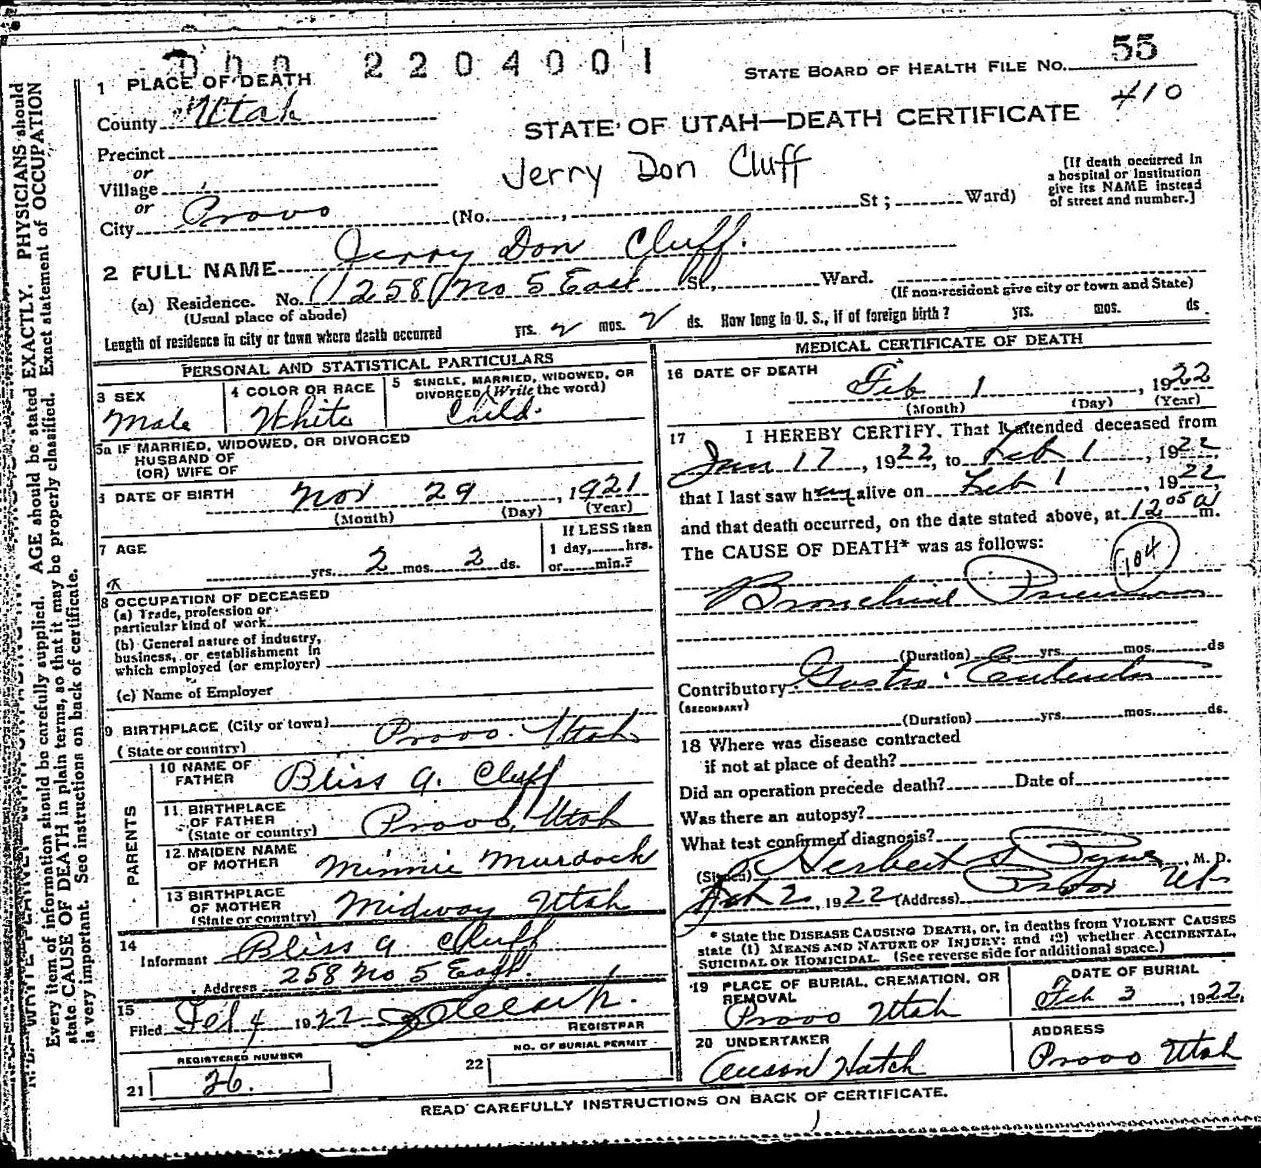 000 2204001
STATE BOARD OF HEALTH FILE NO. 55
410
1 PLACE OF DEATH
County Utah
STATE OF UTAH—DEATH CERTIFICATE
Precinct
or
Village
or
City Provo (No. , St; Ward)
Jerry Don Cluff
[If death occurred in
a hospital or institution
give its NAME instead
of street and number.]
2 FULL NAME Jerry Don Cluff.
(a) Residence. No. 258 No 5 East St, Ward.
(Usual place of abode)
(If non-resident give city or town and State)
Length of residence in city or town where death occurred yrs. 2 mos. 2 ds. How long in U. S., if of foreign birth? yrs. mos. ds.
PERSONAL AND STATISTICAL PARTICULARS
3 SEX
Male
4 COLOR OR RACE
White
5 SINGLE, MARRIED, WIDOWED, OR
DIVORCED (Write the word)
Child.
5a IF MARRIED, WIDOWED, OR DIVORCED
HUSBAND OF
(OR) WIFE OF
6 DATE OF BIRTH Nov 29, 1921
(Month) (Day) (Year)
7 AGE
yrs. 2 mos. 2 ds.
If LESS than
1 day, hrs.
or min.?
8 OCCUPATION OF DECEASED
(a) Trade, profession or
particular kind of work
(b) General nature of industry,
business, or establishment in
which employed (or employer)
(c) Name of Employer
9 BIRTHPLACE (City or town) Provo. Utah
(State or country)
PARENTS
10 NAME OF
FATHER Bliss A. Cluff
11 BIRTHPLACE
OF FATHER
(State or country) Provo, Utah
12 MAIDEN NAME
OF MOTHER Minnie Murdock
13 BIRTHPLACE
OF MOTHER
(State or country) Midway Utah
14
Informant Bliss A Cluff
Address 258 No 5 East.
15
Filed Feb 4 1922
REGISTRAR
REGISTERED NUMBER
21 26.
22 NO. OF BURIAL PERMIT
MEDICAL CERTIFICATE OF DEATH
16 DATE OF DEATH
Feb 1, 1922
(Month) (Day) (Year)
17 I HEREBY CERTIFY, That I attended deceased from
Jan 17, 1922, to Feb 1, 1922,
that I last saw him alive on Feb 1, 1922,
and that death occurred, on the date stated above, at 12 05 a m.
The CAUSE OF DEATH* was as follows:
104
Bronchial Pneumonia
(Duration) yrs. mos. ds
Contributory Gastro
(SECONDARY)
(Duration) yrs. mos. ds.
18 Where was disease contracted
if not at place of death?
Did an operation precede death? Date of
Was there an autopsy?
What test confirmed diagnosis?
(Signed) Herbert S Pyne, M. D.
Feb 2, 1922 (Address) Provo Ut
* State the DISEASE CAUSING DEATH, or, in deaths from VIOLENT CAUSES
state (1) MEANS AND NATURE OF INJURY; and (2) whether ACCIDENTAL,
SUICIDAL OR HOMICIDAL. (See reverse side for additional space.)
19 PLACE OF BURIAL, CREMATION, OR
REMOVAL
Provo Utah
DATE OF BURIAL
Feb 3, 1922,
20 UNDERTAKER
Hatch
ADDRESS
Provo Utah
READ CAREFULLY INSTRUCTIONS ON BACK OF CERTIFICATE.
Every item of information should be carefully supplied. AGE should be stated EXACTLY. PHYSICIANS should
state CAUSE OF DEATH in plain terms, so that it may be properly classified. Exact statement of OCCUPATION
is very important. See instructions on back of certificate.